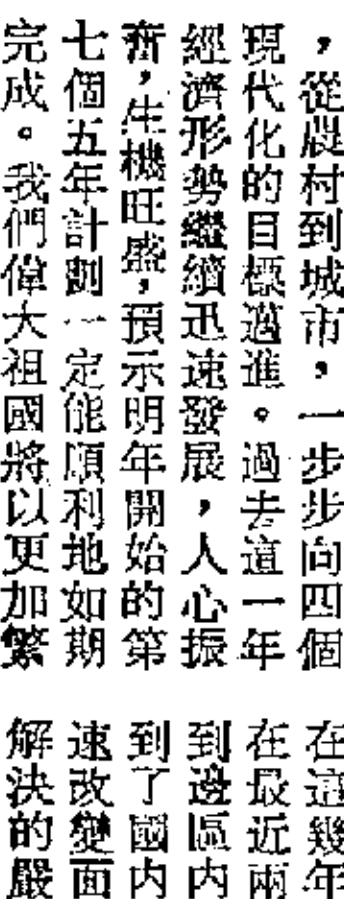 ，從農村到城市，一步步向四個
現代化的目標邁進。過去這一年
經濟形勢繼續迅速發展，人心振
奮，生機旺盛，預示明年開始的第
七個五年計劃一定能順利地如期
完成。我們偉大祖國將以更加繁
在這幾年
在最近兩
到邊區內
到了國內
速改變面
解決的嚴